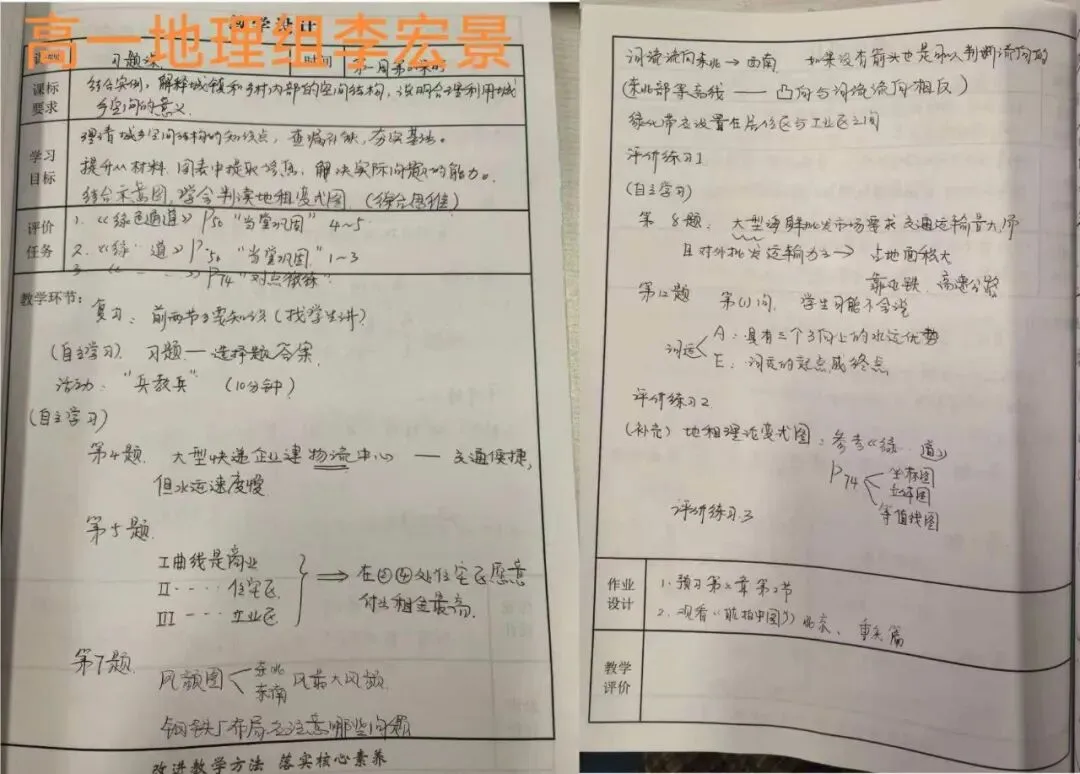 教学设计
高一地理组李宏景
课型 习题课 时间 第一周第 课时
课标要求 结合实例，解释城镇和乡村内部的空间结构，说明合理利用城乡空间的意义。
学习目标 理清城乡空间结构的知识点，查漏补缺，夯实基础。
提升从材料、图表中提取信息，解决实际问题的能力。
结合示意图，学会判读地租变式图。（综合思维）
评价任务 1.《绿色通道》P56 "当堂巩固" 4~5
2.《绿··道》P56 "当堂巩固" 1~3
3.《- - -》P74 "对点微练"
教学环节：
复习：前两节主要知识（找学生讲）
（自主学习） 习题一选择题答案
活动："兵教兵" （10分钟）
（自主学习）
第4题. 大型快递企业建物流中心 —— 交通便捷，
但水运速度慢
第5题.
I曲线是商业
II ···· 住宅区
III --- 工业区
⇒ 在②④处住宅区愿意
付出租金最高.
第7题. 风频图 东北 东南 风最大风频
钢铁厂布局应注意哪些问题
改进教学方法 落实核心素养
河流流向东北→西南. 如果没有箭头也是可以判断流向的
（东北部等高线——凸向与河流流向相反）
绿化带应设置在居住区与工业区之间
评价练习1
（自主学习）
第8题： 大型海鲜批发市场要求交通运输量大，
且对外批发运输为主→ 占地面积大
靠近铁、高速公路
第12题 第(1)问. 学生可能不会说
河运 A：具有三个方向上的水运优势
E：河运的起点或终点
评价练习2
（补充）地租理论变式图：参考《绿··道》
P74 坐标图
立体图
等值线图
评价练习3
作业设计 1.预习第二章第2节
2.观看《航拍中国》北京、重庆篇
教学评价